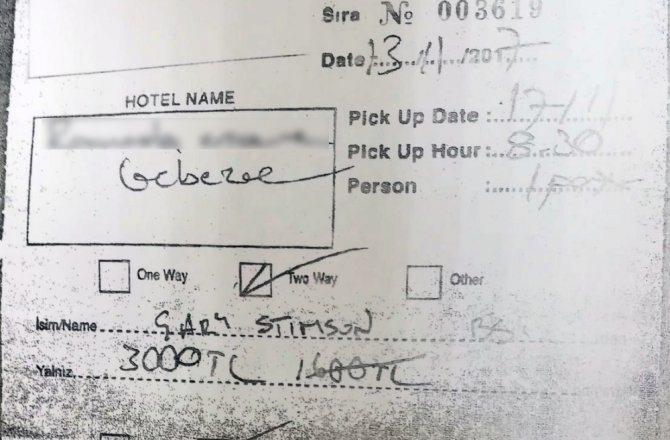 Sıra № 003619
Date 13/1/2017
HOTEL NAME
Gebeze
Pick Up Date : 17/11
Pick Up Hour : 8.30
Person : 1
One Way Two Way Other
Isim/Name GARY STIMSON
Yalnız 3000TL 1600TL